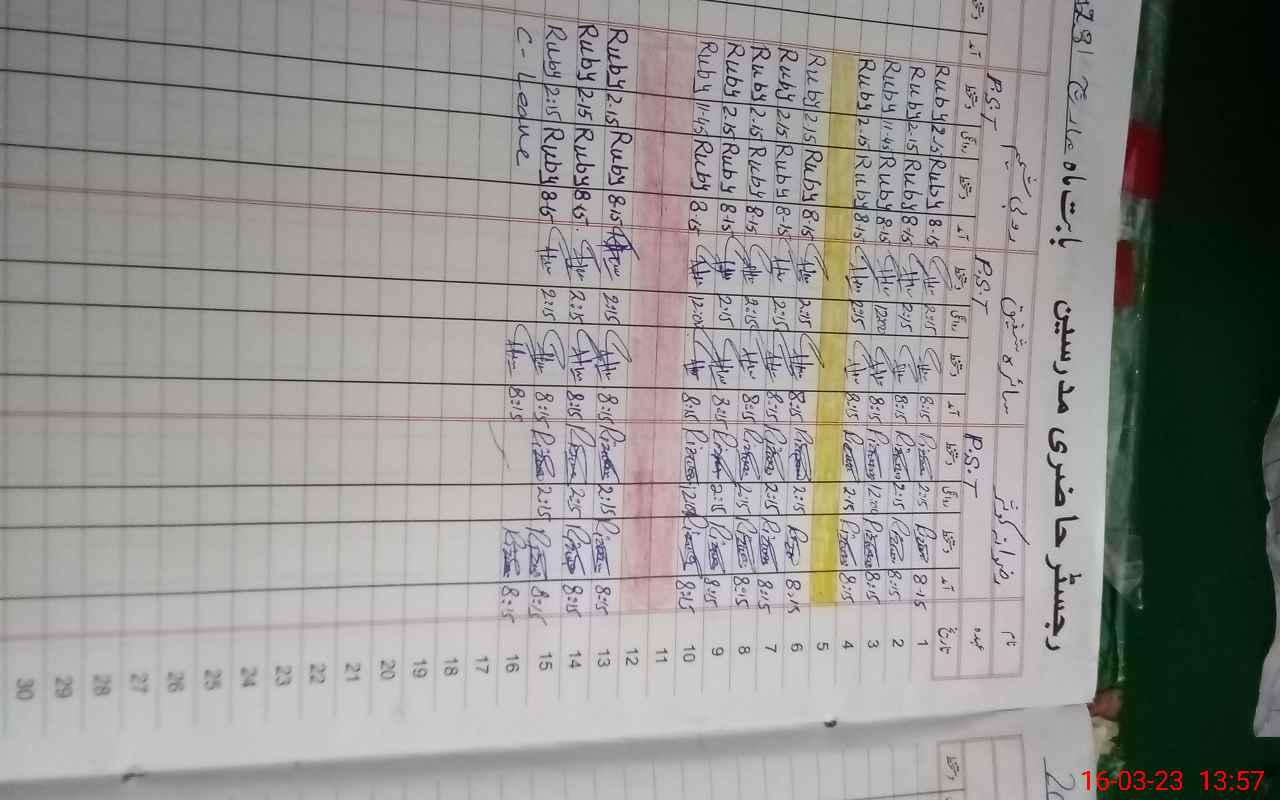 رجسٹر حاضری مدرسین بابت ماہ مارچ
نام رضوان کوثر سائرہ شفیق روبی
عہدہ P.S.T P.S.T P.S.T
تاریخ آمد دستخط روانگی دستخط آمد دستخط روانگی دستخط آمد دستخط روانگی دستخط آمد
Ruby 2.15 Ruby 8.15 2:15 8:15 Rizwan 2:15 Rizwan 8.15 1
Ruby 2.15 Ruby 8.15 2:15 8:15 Rizwan 2:15 Rizwan 8:15 2
Ruby 11.45 Ruby 8:15 12:00 8:15 Rizwan 12:00 Rizwan 8:15 3
Ruby 2.15 Ruby 8:15 2:15 8:15 Rizwan 2:15 Rizwan 8:15 4
5
Ruby 2.15 Ruby 8.15 2:15 8:15 Rizwan 2:15 Rizwan 8:15 6
Ruby 2.15 Ruby 8.15 2:15 8:15 Rizwan 2:15 Rizwan 8:15 7
Ruby 2.15 Ruby 8.15 2:15 8:15 Rizwan 2:15 Rizwan 8:15 8
Ruby 2.15 Ruby 8.15 2:15 8:15 Rizwan 2:15 Rizwan 8:15 9
Ruby 11.45 Ruby 8.15 12:00 8:15 Rizwan 12:00 Rizwan 8:15 10
11
12
Ruby 2.15 Ruby 8.15 2:15 8:15 Rizwan 2:15 Rizwan 8:15 13
Ruby 2.15 Ruby 8.15 2:15 8:15 Rizwan 2:15 Rizwan 8:15 14
Ruby 2:15 Ruby 8.15 2:15 8:15 Rizwan 2:15 Rizwan 8:15 15
C-Leave 8:15 Rizwan 8:15 16
17
18
19
20
21
22
23
24
25
26
27
28
29
30
16-03-23 13:57